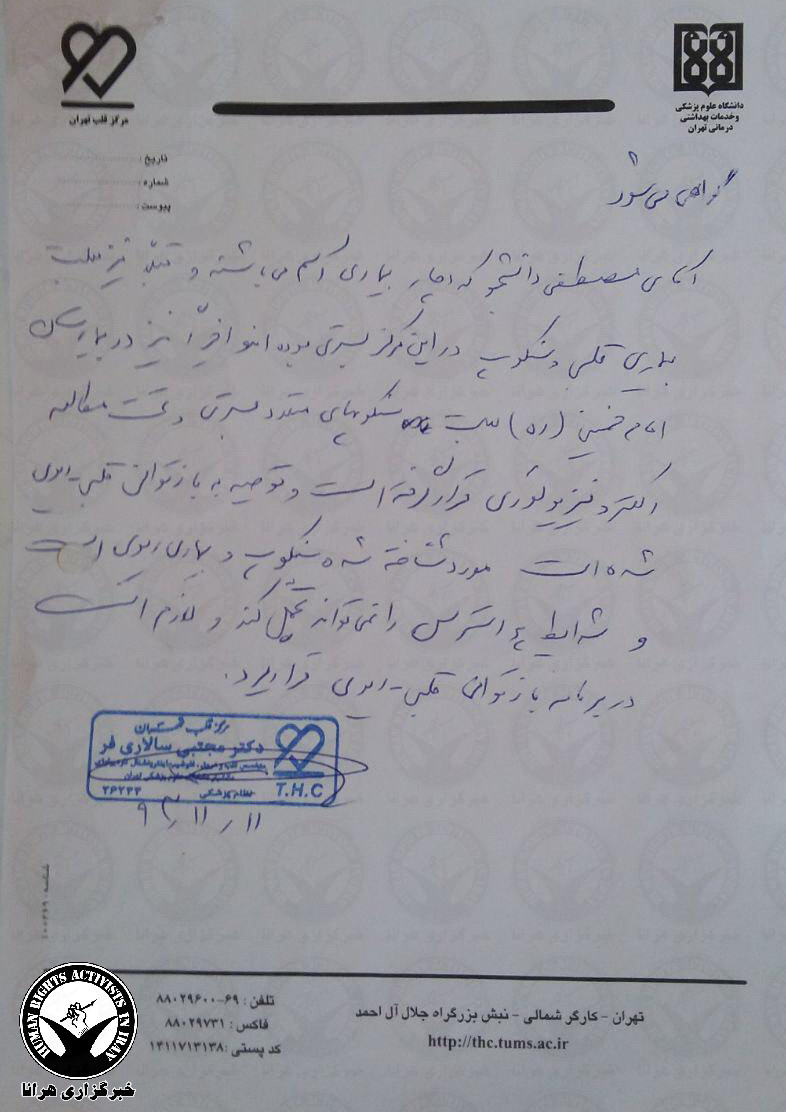 مرکز قلب تهران
دانشگاه علوم پزشکی
وخدمات بهداشتی
درمانی تهران
تاریخ:
شماره:
پیوست:
گواهی می شود
آقای مصطفی دانشجو که دچار بیماری آسم می باشد و قبلا نیز بعلت
بیماری قلبی و سنکوپ در این مرکز بستری بوده اند و اخیراً نیز در بیمارستان
امام خمینی (ره) بعلت سنکوپهای متعدد بستری و تحت مطالعه
الکتروفیزیولوژی قرار گرفته است و توصیه به بازتوانی قلبی-ریوی
شده است مورد شناخته شده سنکوپ و بیماری ریوی است
و شرایط پر استرس را نمی تواند تحمل کند و لازم است
در برنامه بازتوانی قلبی-ریوی قرار گیرد.
مرکز قلب تهران
دکتر مجتبی سالاری فر
نظام پزشکی ۲۶۲۴۴
T.H.C
۹۳/۱۱/۱۱
شناسه: ۱۰۰۲۶۹
تهران - کارگر شمالی - نبش بزرگراه جلال آل احمد
http://thc.tums.ac.ir
تلفن: ۶۹-۸۸۰۲۹۶۰۰
فاکس: ۸۸۰۲۹۷۳۱
کد پستی: ۱۴۱۱۷۱۳۱۳۸
HUMAN RIGHTS ACTIVISTS IN IRAN
خبرگزاری هرانا